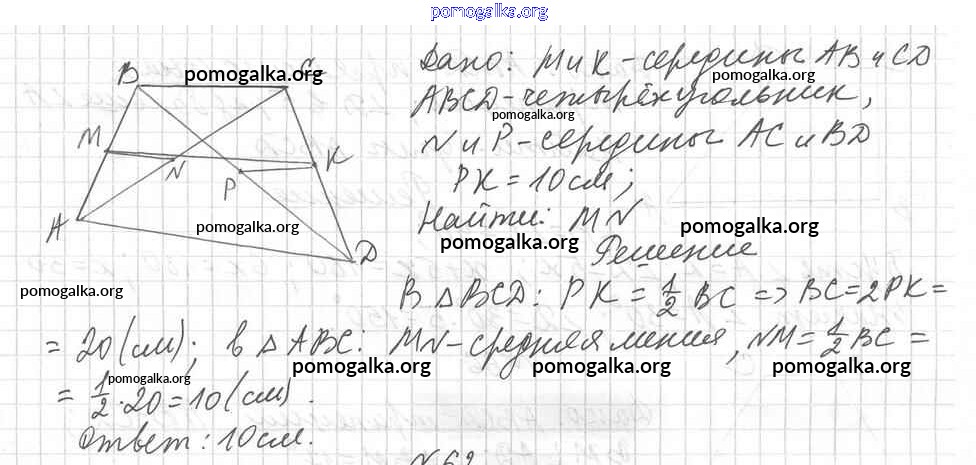 pomogalka.org
Дано: М и К - середины АВ и CD
ABCD - четырёхугольник,
N и P - середины AC и BD
PK = 10 см;
Найти: MN
Решение
В △BCD: PK = 1/2 BC => BC = 2PK =
= 20 (см); в △ABC: MN - средняя линия, NM = 1/2 BC =
= 1/2 · 20 = 10 (см).
Ответ: 10 см.
B
C
M
N
P
K
A
D
pomogalka.org
pomogalka.org
pomogalka.org
pomogalka.org
pomogalka.org
pomogalka.org
pomogalka.org
pomogalka.org
pomogalka.org
pomogalka.org
pomogalka.org